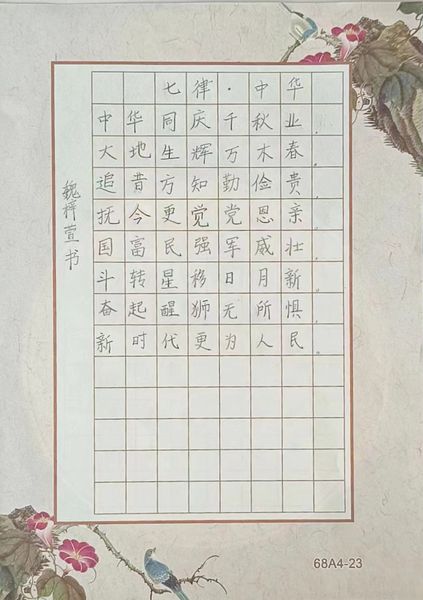 七律·中华
中华同庆千秋业。
大地生辉万木春。
追昔方知勤俭贵。
抚今更觉党恩亲。
国富民强军威壮。
斗转星移日月新。
奋起醒狮无所惧。
新时代更为人民。
魏梓萱书
68A4-23